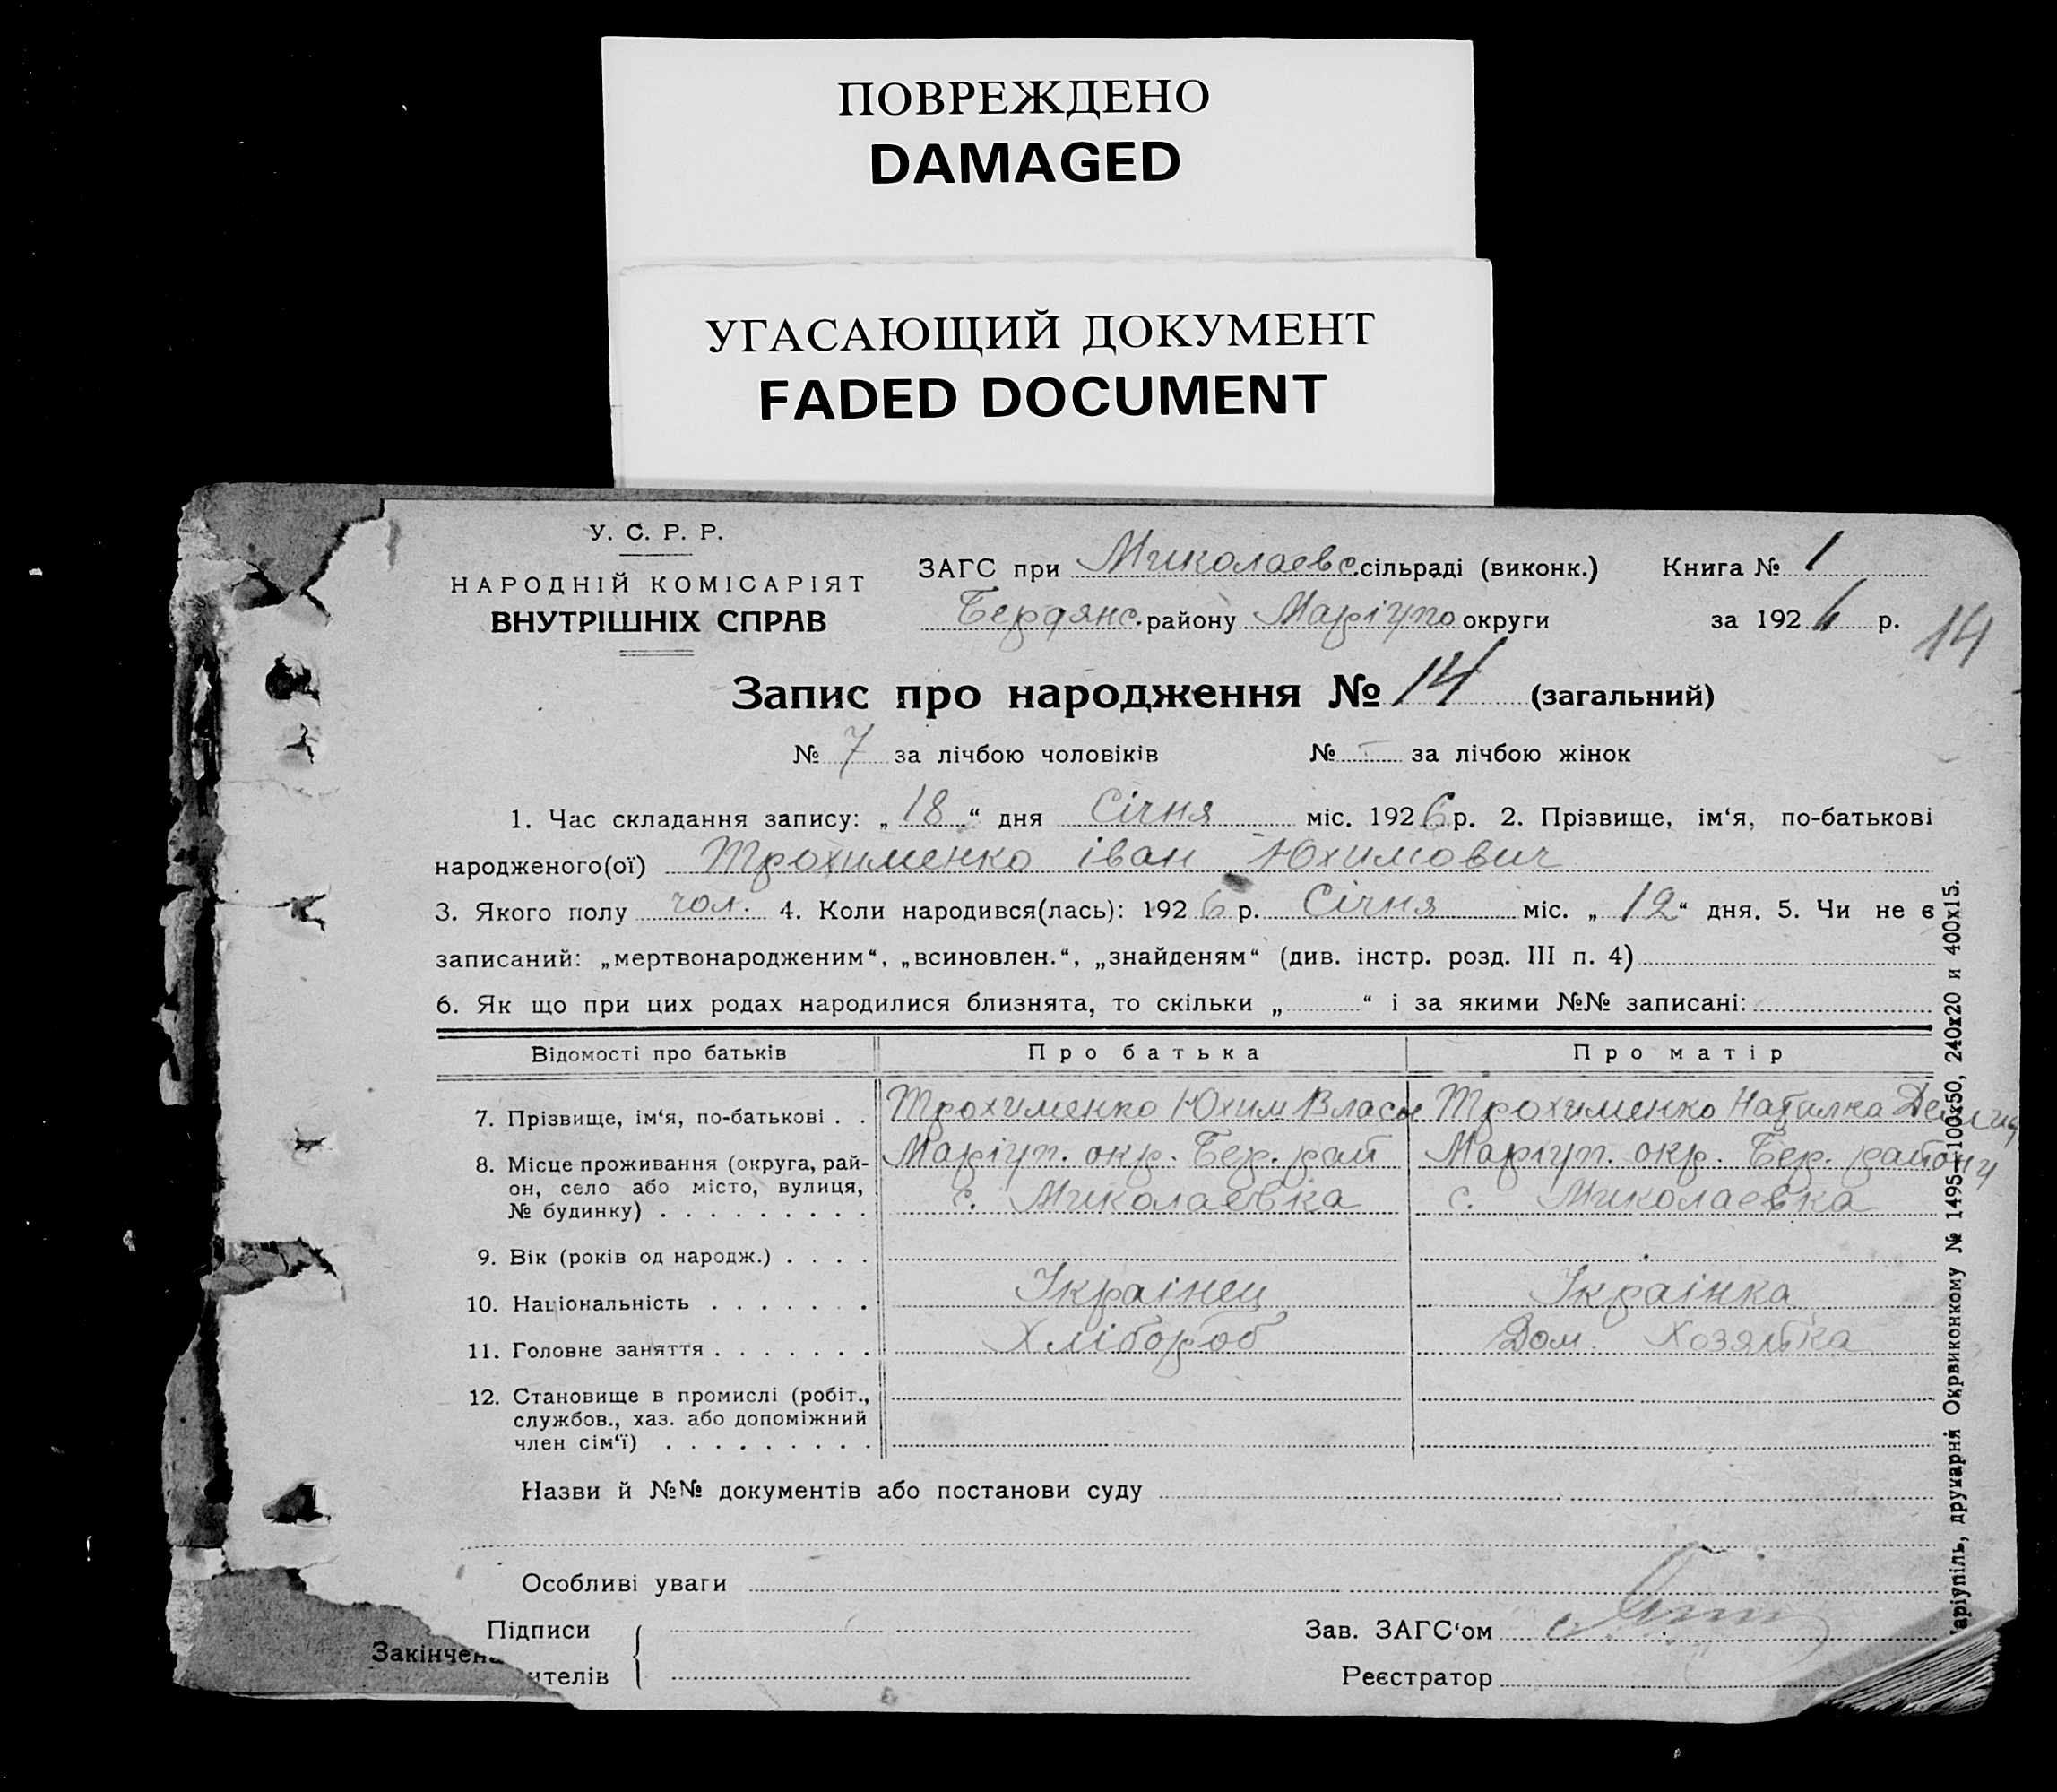 ПОВРЕЖДЕНО
DAMAGED
УГАСАЮЩИЙ ДОКУМЕНТ
FADED DOCUMENT
У. С. Р. Р.
НАРОДНІЙ КОМІСАРІЯТ
ВНУТРІШНІХ СПРАВ
ЗАГС при Миколаевс. сільраді (виконк.) Книга № 1
Бердянс. району Маріупо округи за 1926 р. 14
Запис про народження № 14 (загальний)
№ 7 за лічбою чоловіків № за лічбою жінок
1. Час складання запису: „18“ дня Січня міс. 1926 р. 2. Прізвище, ім‘я, по-батькові
народженого(ої) Трохименко іван Юхимович
3. Якого полу чол. 4. Коли народився(лась): 1926 р. Січня міс. „12“ дня. 5. Чи не є
записаний: „мертвонародженим“, „всиновлен.“, „знайденям“ (див. інстр. розд. III п. 4)
6. Як що при цих родах народилися близнята, то скільки „ “ і за якими №№ записані:
Відомості про батьків Про батька Про матір
7. Прізвище, ім‘я, по-батькові . . Трохименко Юхим Власи Трохименко Наталка
8. Місце проживання (округа, рай- Маріуп. окр. Бер. рай Маріуп. окр. Бер. району
он, село або місто, вулиця, с. Миколаевка с. Миколаевка
№ будинку) . . . . . . . . .
9. Вік (років од народж.) . . . .
10. Національність . . . . . . . Украінец Украінка
11. Головне заняття . . . . . . . Хлібороб Дом. Хозяйка
12. Становище в промислі (робіт.,
службов., хаз. або допоміжний
член сім‘ї) . . . . . . . . .
Назви й №№ документів або постанови суду
Особливі уваги
Підписи Зав. ЗАГС‘ом
Закінчен
ителів Реєстратор
аріупіль, друкарня Окрвиконкому № 1495—100х50, 240х20 и 400х15.